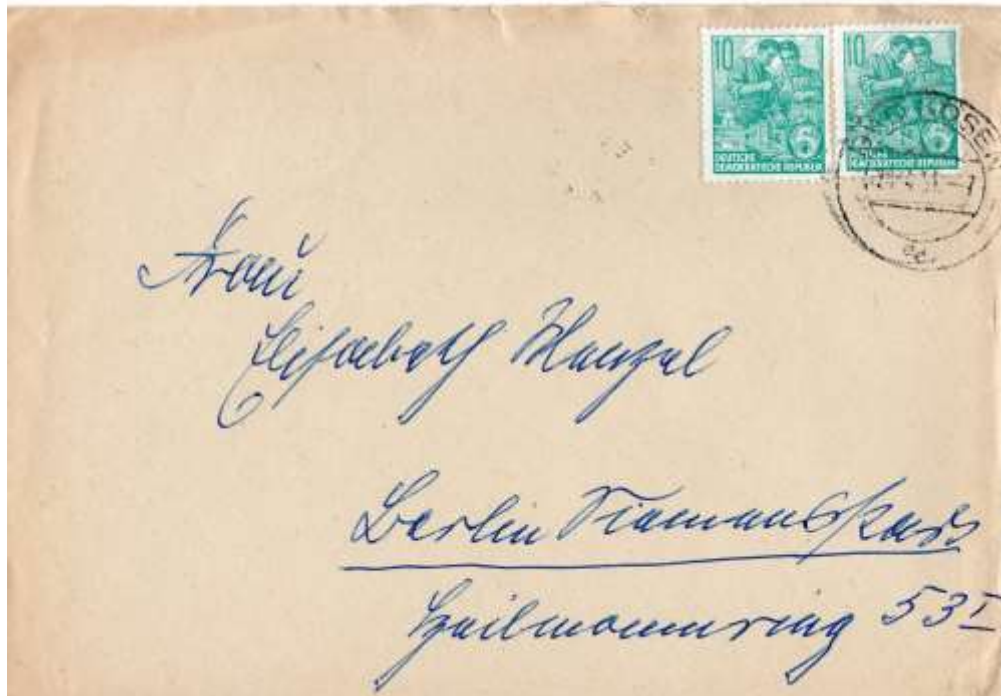 10
DEUTSCHE
DEMOKRATISCHE REPUBLIK
6
10
DEMOKRATISCHE REPUBLIK
6
Frau
Elisabeth
Berlin Siemensstadt
Heilmannring 53 I